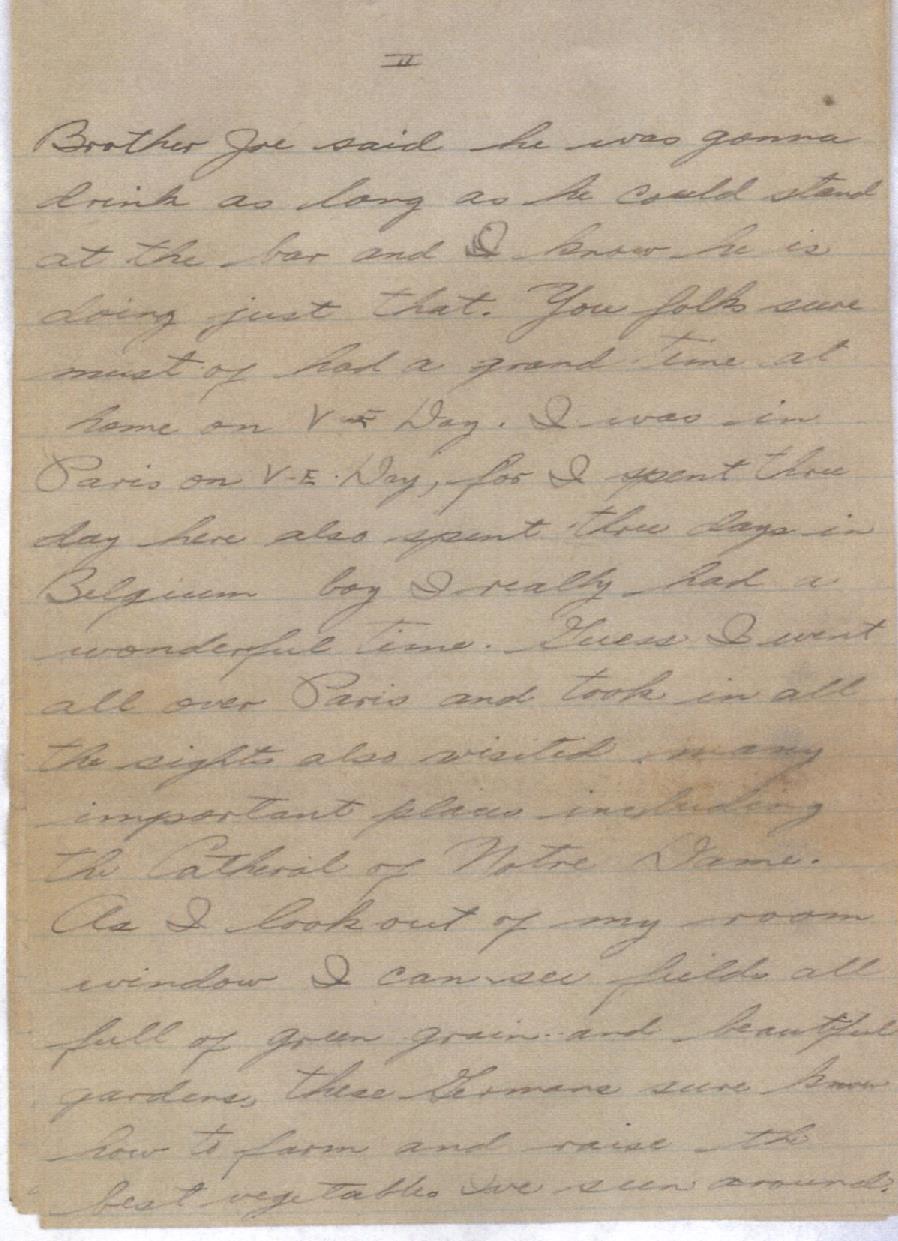 II
Brother Joe said he was gonna
drink as long as he could stand
at the bar and I know he is
doing just that. You folks sure
must of had a grand time at
home on V-E Day. I was in
Paris on V-E-Day, for I spent three
day here also spent three days in
Belgium boy I really had a
wonderful time. Guess I went
all over Paris and took in all
the sights also visited many
important places including
the Catheral of Notre Dame.
As I look out of my room
window I can see fields all
full of green grain and beautiful
gardens, these Germans sure know
how to farm and raise the
best vegetables Ive seen around.